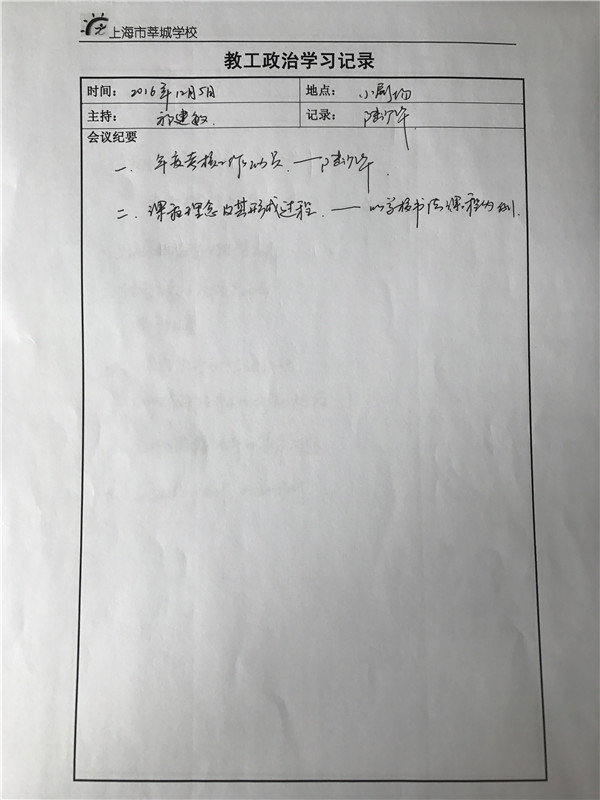 上海市莘城学校
教工政治学习记录
时间： 2016年12月5日 地点： 小剧场
主持： 祁建敏 记录： 陆少华
会议纪要
一、年度考核工作动员 —— 陆少华
二、课程理念及其形成过程 —— 以学校书法课程为例.